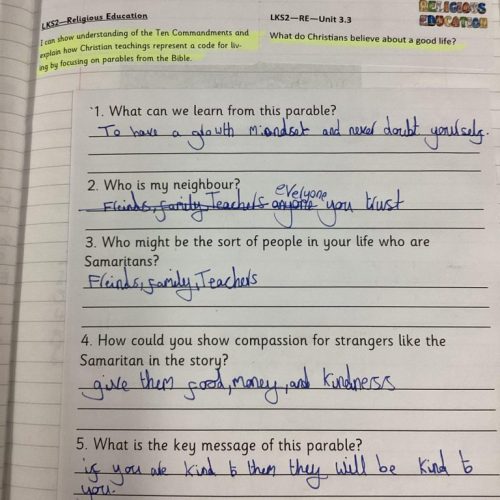 LKS2—Religious Education
LKS2—RE—Unit 3.3
RELIGIOUS
EDUCATION
I can show understanding of the Ten Commandments and
explain how Christian teachings represent a code for liv-
ing by focusing on parables from the Bible.
What do Christians believe about a good life?
1. What can we learn from this parable?
To have a glowth miendset and never doubt yourself.
2. Who is my neighbour?
everyone
Freinds, family, Teachers anyone you trust
3. Who might be the sort of people in your life who are
Samaritans?
Freinds, family, Teachers
4. How could you show compassion for strangers like the
Samaritan in the story?
give them food, money, and kindnerss
5. What is the key message of this parable?
if you are kind to them they will be kind to
you.